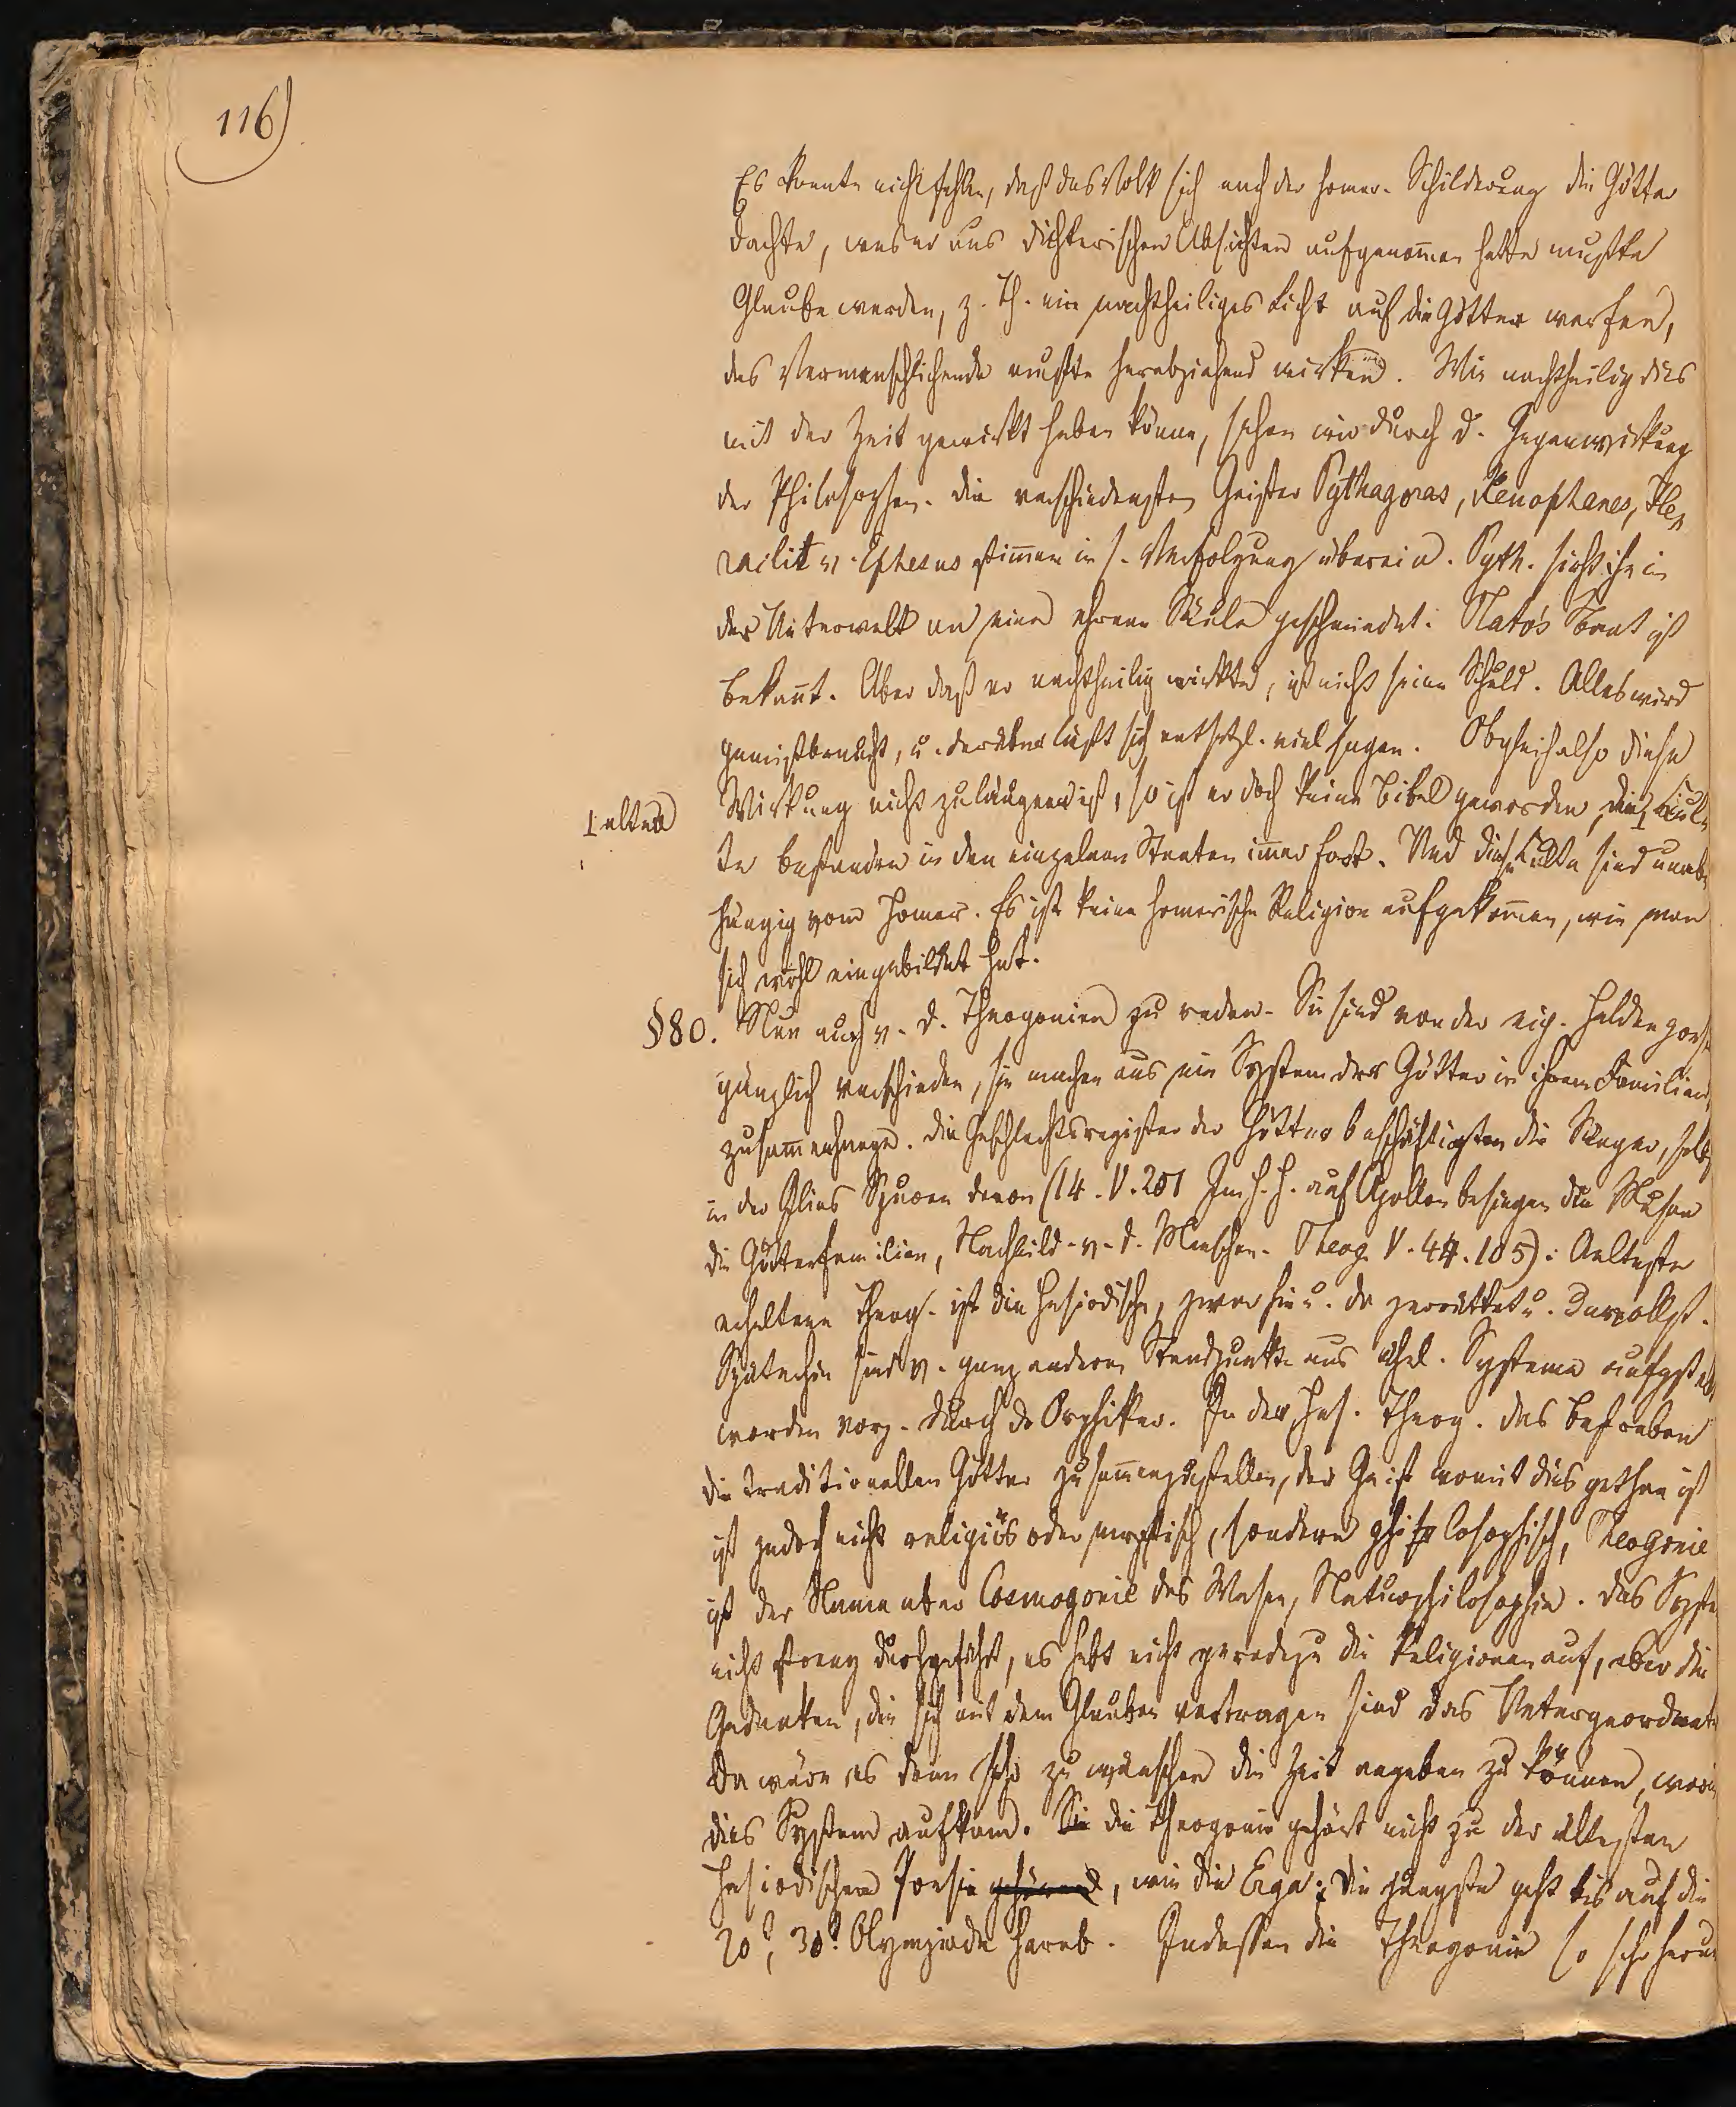 116)
Es konnte nicht fehlen, daß das Volk sich nach der homer. Schilderung die Götter
dachte, was er aus dichterischen Absichten aufgenom̄en hatte mußte
Glaube werden, z. Th. ein nachtheiliges Licht auf die Götter werfen,
das Vermenschlichende mußte herabziehend wirken. Wie nachtheilig dies
mit der Zeit gewirkt haben könne, sehen wir durch d. Gegenwirkung
der Philosophen. Die verschiedensten Geister Pythagoras, Xenophanes, He-
raclit v. Ephesus stim̄en in s. Verfolgung überein. Pyth. sieht ihn in
der Unterwelt an eine eherne Säule geschmiedet. Plato's Bant ist
bekan̄t. Aber daß er nachtheilig wirkte, ist nicht seine Schuld. Alles wird
gemißbraucht, u. darüber läßt sich entsetzl. viel sagen. Obgleich also diese
Wirkung nicht zu läugnen ist, so ist er doch keine Bibel geworden, die ⌊ Cul-
⌊ alten
te bestanden in den einzelnen Staaten im̄er fort. Und diese Culte sind unab-
hängig vom Homer. Es ist keine homerische Religion aufgekom̄en, wie man
sich wohl eingebildet hat.
§80. Nun auch v. d. Theogonien zu reden. Sie sind von der eig. Heldenpoesie
gänzlich verschieden, sie machen aus ein System der Götter in ihrem Familien-
zusam̄enhange. Die Geschlechtsregister der Götter beschäftigten die Sänger, selbst
in der Ilias Spuren davon (14. V. 201 Im h. H. auf Apollon besingen die Musen
die Götterfamilien, Nachbild. v. d. Menschen. Theog. V. 44. 105). Aelteste
erhaltene Theog. ist die hesiodische, zwar hie u. da zerrüttet u. unvollst.
Späterhin sind v. ganz anderen Standpunkte aus ähnl. Systeme aufgestellt
worden vorz. durch de Orphiker. In der Hes. Theog. das Bestreben
die traditionellen Götter zusam̄enzustellen, der Geist womit dies gethan ist
ist jedoch nicht religiös oder mystisch, sondern philosophisch, Theogonie
ist der Name aber Cosmogonie das Wesen, Naturphilosophie. Das System
nicht streng durchgeführt, es hebt nicht geradezu die Religionen auf, aber die
Gedanken, die sich mit dem Glauben vertragen sind das Untergeordnete
Da wäre es denn sehr zu wünschen die Zeit angeben zu können, worin
dies System aufkam. Sie die Theogonie gehört nicht zu der ältesten
hesiodischen Poesie gehörend, wie die Erga; die jüngste geht bis auf die
20?, 30? Olympiade herab. Indessen die Theogonie so sehr herun-